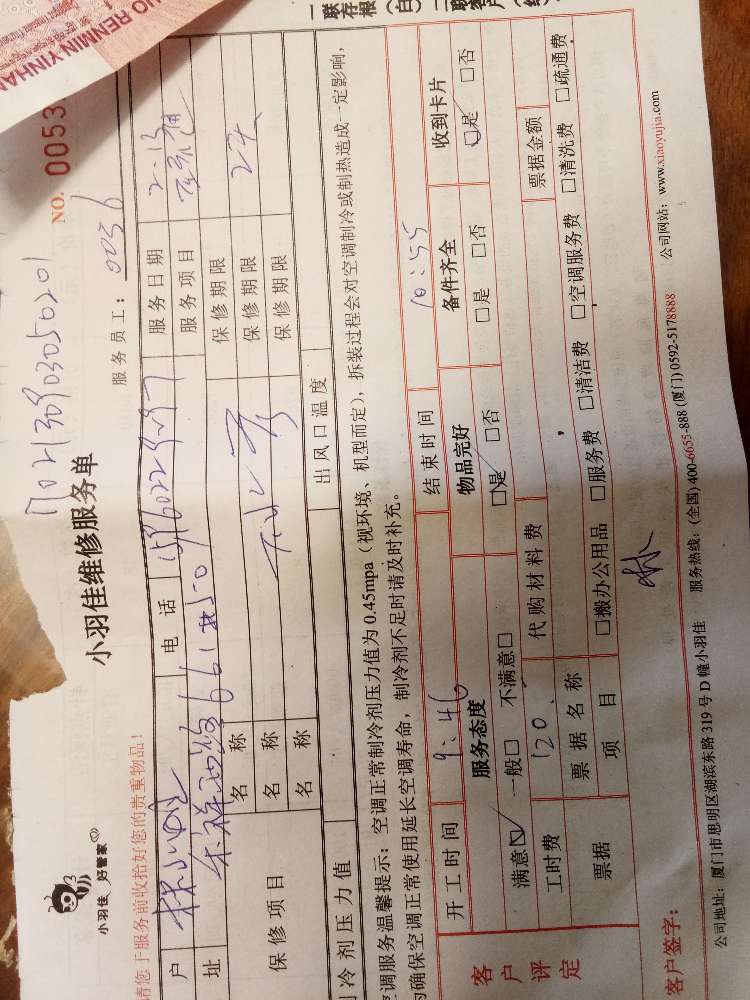 UO RENMIN YINHAN
一联存根(白)二联客户(红
小羽佳 好管家
小羽佳维修服务单
NO. 0053
请您于服务前收拾好您的贵重物品!
服务员工: 0036
户 电话 服务日期 2.13
址 服务项目
保修项目 名称 保修期限 2天
名称 保修期限
名称 保修期限
制冷剂压力值 出风口温度
空调服务温馨提示:空调正常制冷剂压力值为 0.45mpa(视环境、机型而定),拆装过程会对空调制冷或制热造成一定影响,
为确保空调正常使用延长空调寿命,制冷剂不足时请及时补充。
客户评定 开工时间 9:46 结束时间 10:55
服务态度 物品完好 备件齐全 收到卡片
满意☑ 一般□ 不满意□ □是 □否 □是 □否 □是 □否
工时费 120. 代购材料费 票据金额
票据 票据名称 项目 □搬办公用品 □服务费 □清洁费 □空调服务费 □清洗费 □疏通费
客户签字: 林
公司地址:厦门市思明区湖滨东路 319 号 D 幢小羽佳 服务热线:(全国) 400-6655-888 (厦门) 0592-5178888 公司网站:www.xiaoyujia.com